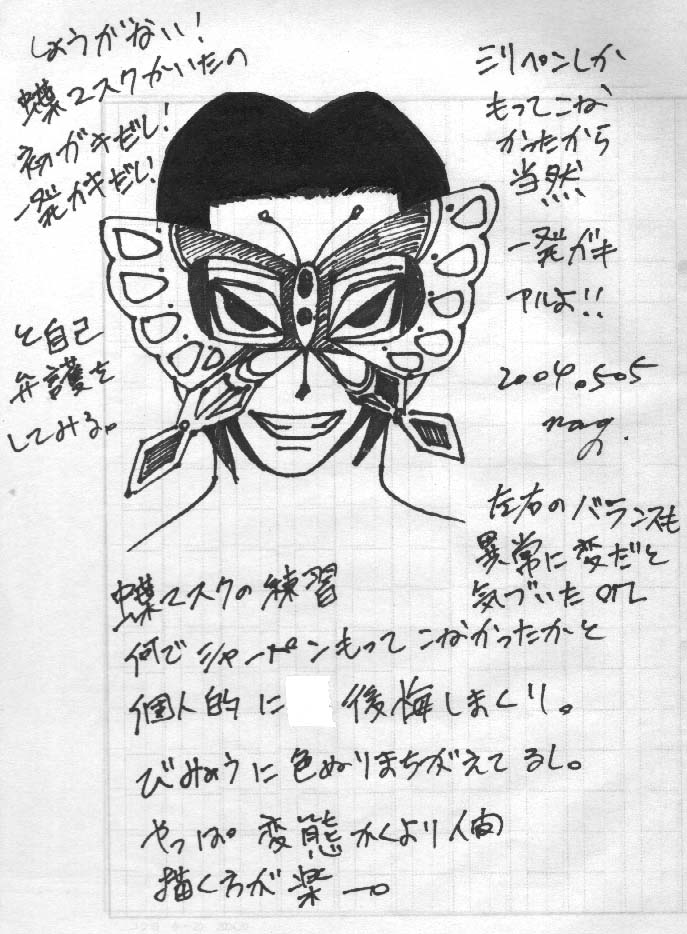 しょうがない!
蝶マスクかいたの
初ガキだし!
一発ガキだし!
と自己
弁護を
してみる。
ミリペンしか
もってこな
かったから
当然
一発ガキ
アルよ!!
2004.505
nag.
左右のバランスも
異常に変だと
気づいたorz
蝶マスクの練習
何でシャーペンもってこなかったかと
個人的に 後悔しまくり。
びみょうに色ぬりまちがえてるし。
やっぱ変態かくより人間
描く方が楽ー。